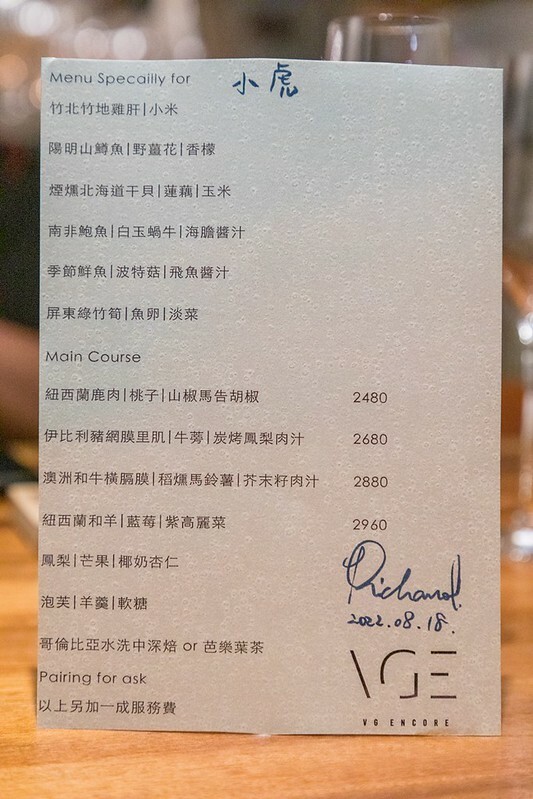 Menu Specailly for 小虎
竹北竹地雞肝|小米
陽明山鱒魚|野薑花|香檬
煙燻北海道干貝|蓮藕|玉米
南非鮑魚|白玉蝸牛|海膽醬汁
季節鮮魚|波特菇|飛魚醬汁
屏東綠竹筍|魚卵|淡菜
Main Course
紐西蘭鹿肉|桃子|山椒馬告胡椒 2480
伊比利豬網膜里肌|牛蒡|炭烤鳳梨肉汁 2680
澳洲和牛橫膈膜|稻燻馬鈴薯|芥末籽肉汁 2880
紐西蘭和羊|藍莓|紫高麗菜 2960
鳳梨|芒果|椰奶杏仁
泡芙|羊羹|軟糖
Richard.
2022.08.18.
哥倫比亞水洗中深焙 or 芭樂葉茶
Pairing for ask
以上另加一成服務費
VGE
VG ENCORE